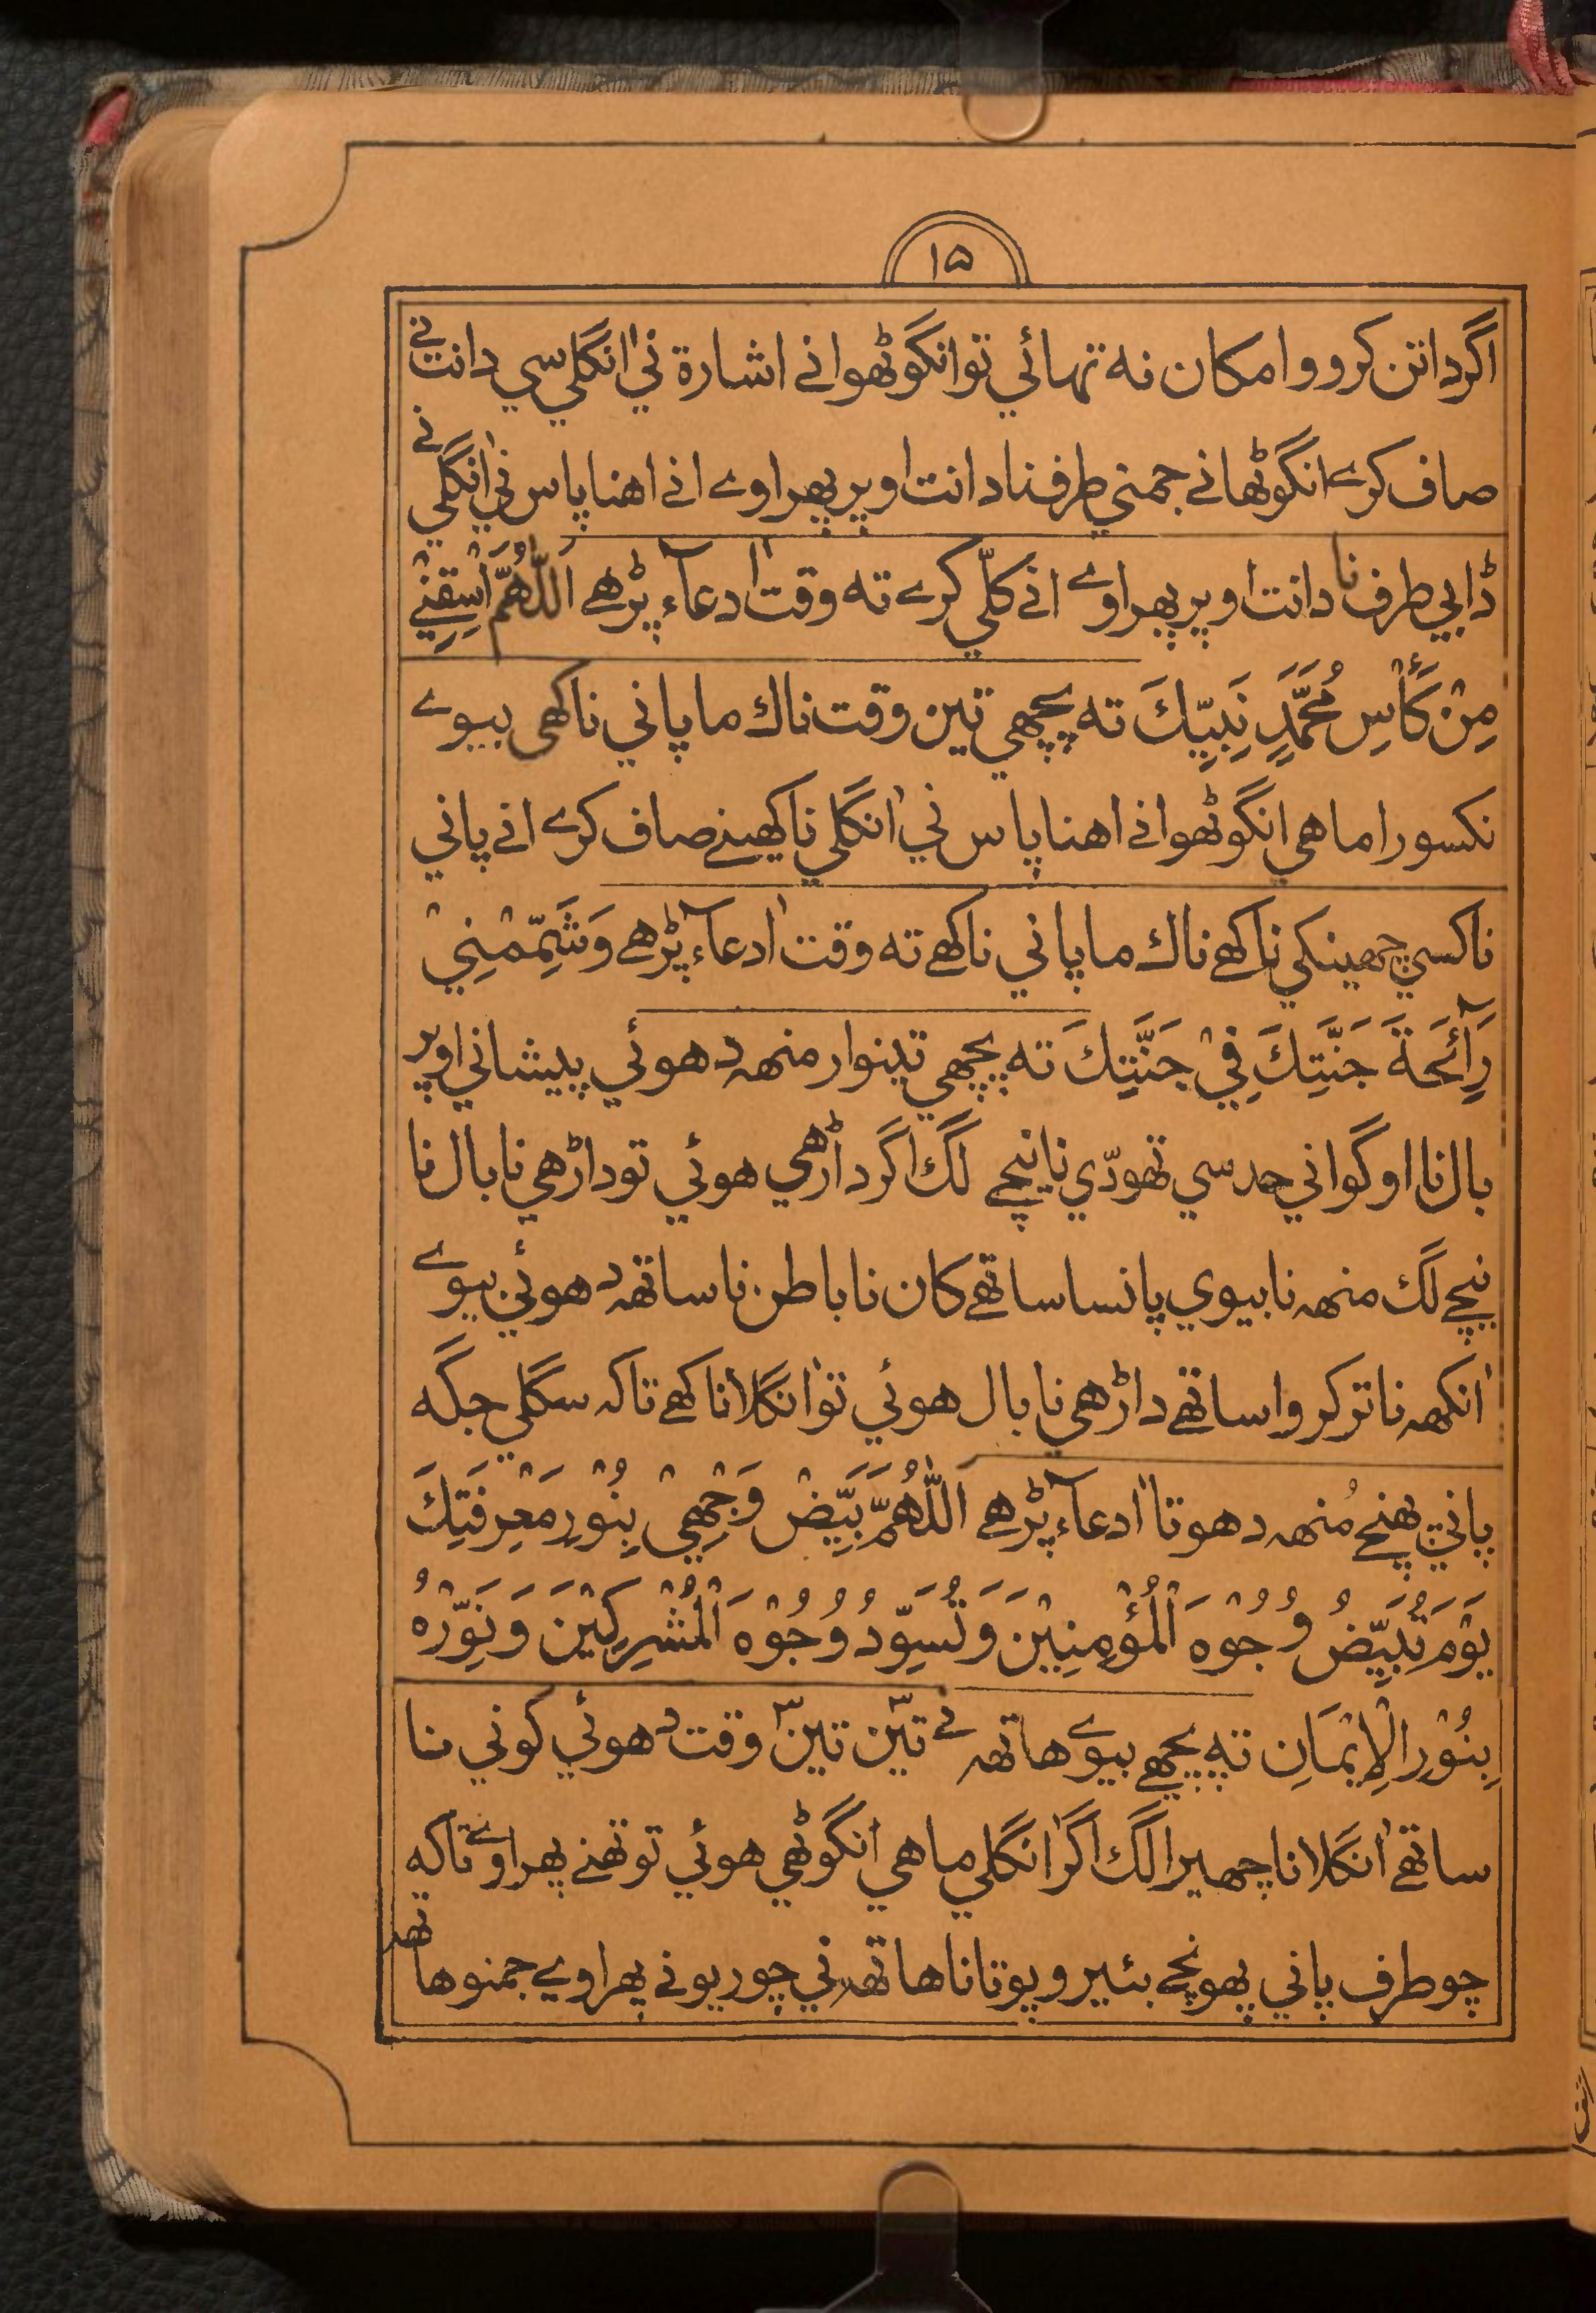 ١٥
اگر داتن كروو امكان نه تهائي تو انگوٹهو انے اشارة ني اٰنگلي سي دانت نے
صاف كرے انگوٹها نے جمني طرف نا دانت اوپر پهراوے انے اهنا پاس ني اٰنگلي نے
ڈابي طرف نا دانت اوپر پهراوے انے كلّي كرے ته وقت اٰ دعاء پڑهے اَللّٰهُمَّ اسْقِنِيْ
مِنْ كَأْسِ مُحَمَّدٍ نَبِيِّكَ ته پچهي تين وقت ناك ما پاني ناكهي بيوے
نكسورا ماهي انگوٹهو انے اهنا پاس ني اٰنگلي ناكهينے صاف كرے انے پاني
ناكسي چهينكي ناكهے ناك ما پاني ناكهے ته وقت اٰ دعاء پڑهے وَشَمِّمْنِيْ
رَآئِحَةَ جَنَّتِكَ فِيْ جَنَّتِكَ ته پچهي تينوار منهه دهوئي پيشاني اوپر
بال نا اوگواني حد سي تهودّي نا نيچے لگ اگر داڑهي هوئي تو داڑهي نا بال نا
نيچے لگ منهه نا بيوي پانسا ساتهے كان نا باطن نا ساتهه دهوئي بيوے
اٰنكهه نا تر كروا ساتهے داڑهي نا بال هوئي تو اٰنگلا ناكهے تاكه سگلي جگه
پاني پهنچے مُنهه دهوتا اٰ دعاء پڑهے اللّٰهُمَّ بَيِّضْ وَجْهِيْ بِنُوْرِ مَعْرِفَتِكَ
يَوْمَ تُبَيِّضُ وُجُوْهَ الْمُؤْمِنِيْنَ وَتُسَوِّدُ وُجُوْهَ الْمُشْرِكِيْنَ وَنَوِّرْهُ
بِنُوْرِ الْاِيْمَانِ ته پچهے بيوے هاتهه نے تين تين وقت دهوئي كوني نا
ساتهے اٰنگلا نا چهيرا لگ اگر اٰنگلي ماهي انگوٹهي هوئي تو تهنے پهراوے تاكه
چو طرف پاني پهونچے بئيرو پوتانا هاتهه ني چوريو نے پهراوے جمنو هاتهه